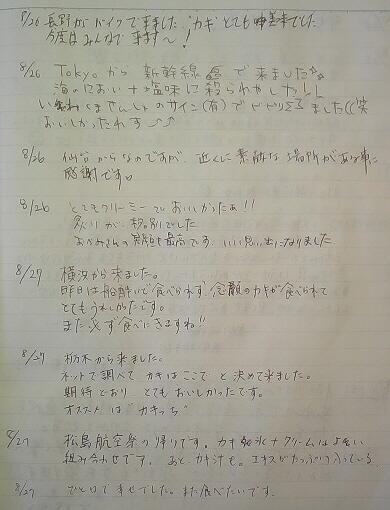 8/26 長野からバイクで来ました。"カキ"とても
今度はみんなで来ます～!
8/26 Tokyoから 新幹線 で来ました☆☆
海のにおい+塩味に
のサイン(有)で ました((笑
おいしかったれす
8/26 仙台からなのですが、近くに素敵な場所がある事に
感謝です。
8/26 とてもクリーミーで おいしかったぁ!!
炙りが、格別でした
おかみさんの笑顔も最高です。いい思い出になりました
8/27 横浜から来ました。
昨日は船酔いで食べられず、念願のカキが食べられて
とてもうれしかったです。
また必ず食べにきますね!!
8/27 栃木から来ました。
ネットで調べて カキはここで と決めて来ました。
期待どおり とても おいしかったです。
オススメは "カキっち"
8/27 松島航空祭の帰りです。カキ + クリームは
組み合わせです。あと、カキ汁も。エキスがたっぷり入っている
8/27 ひと口で幸せでした。また食べたいです。